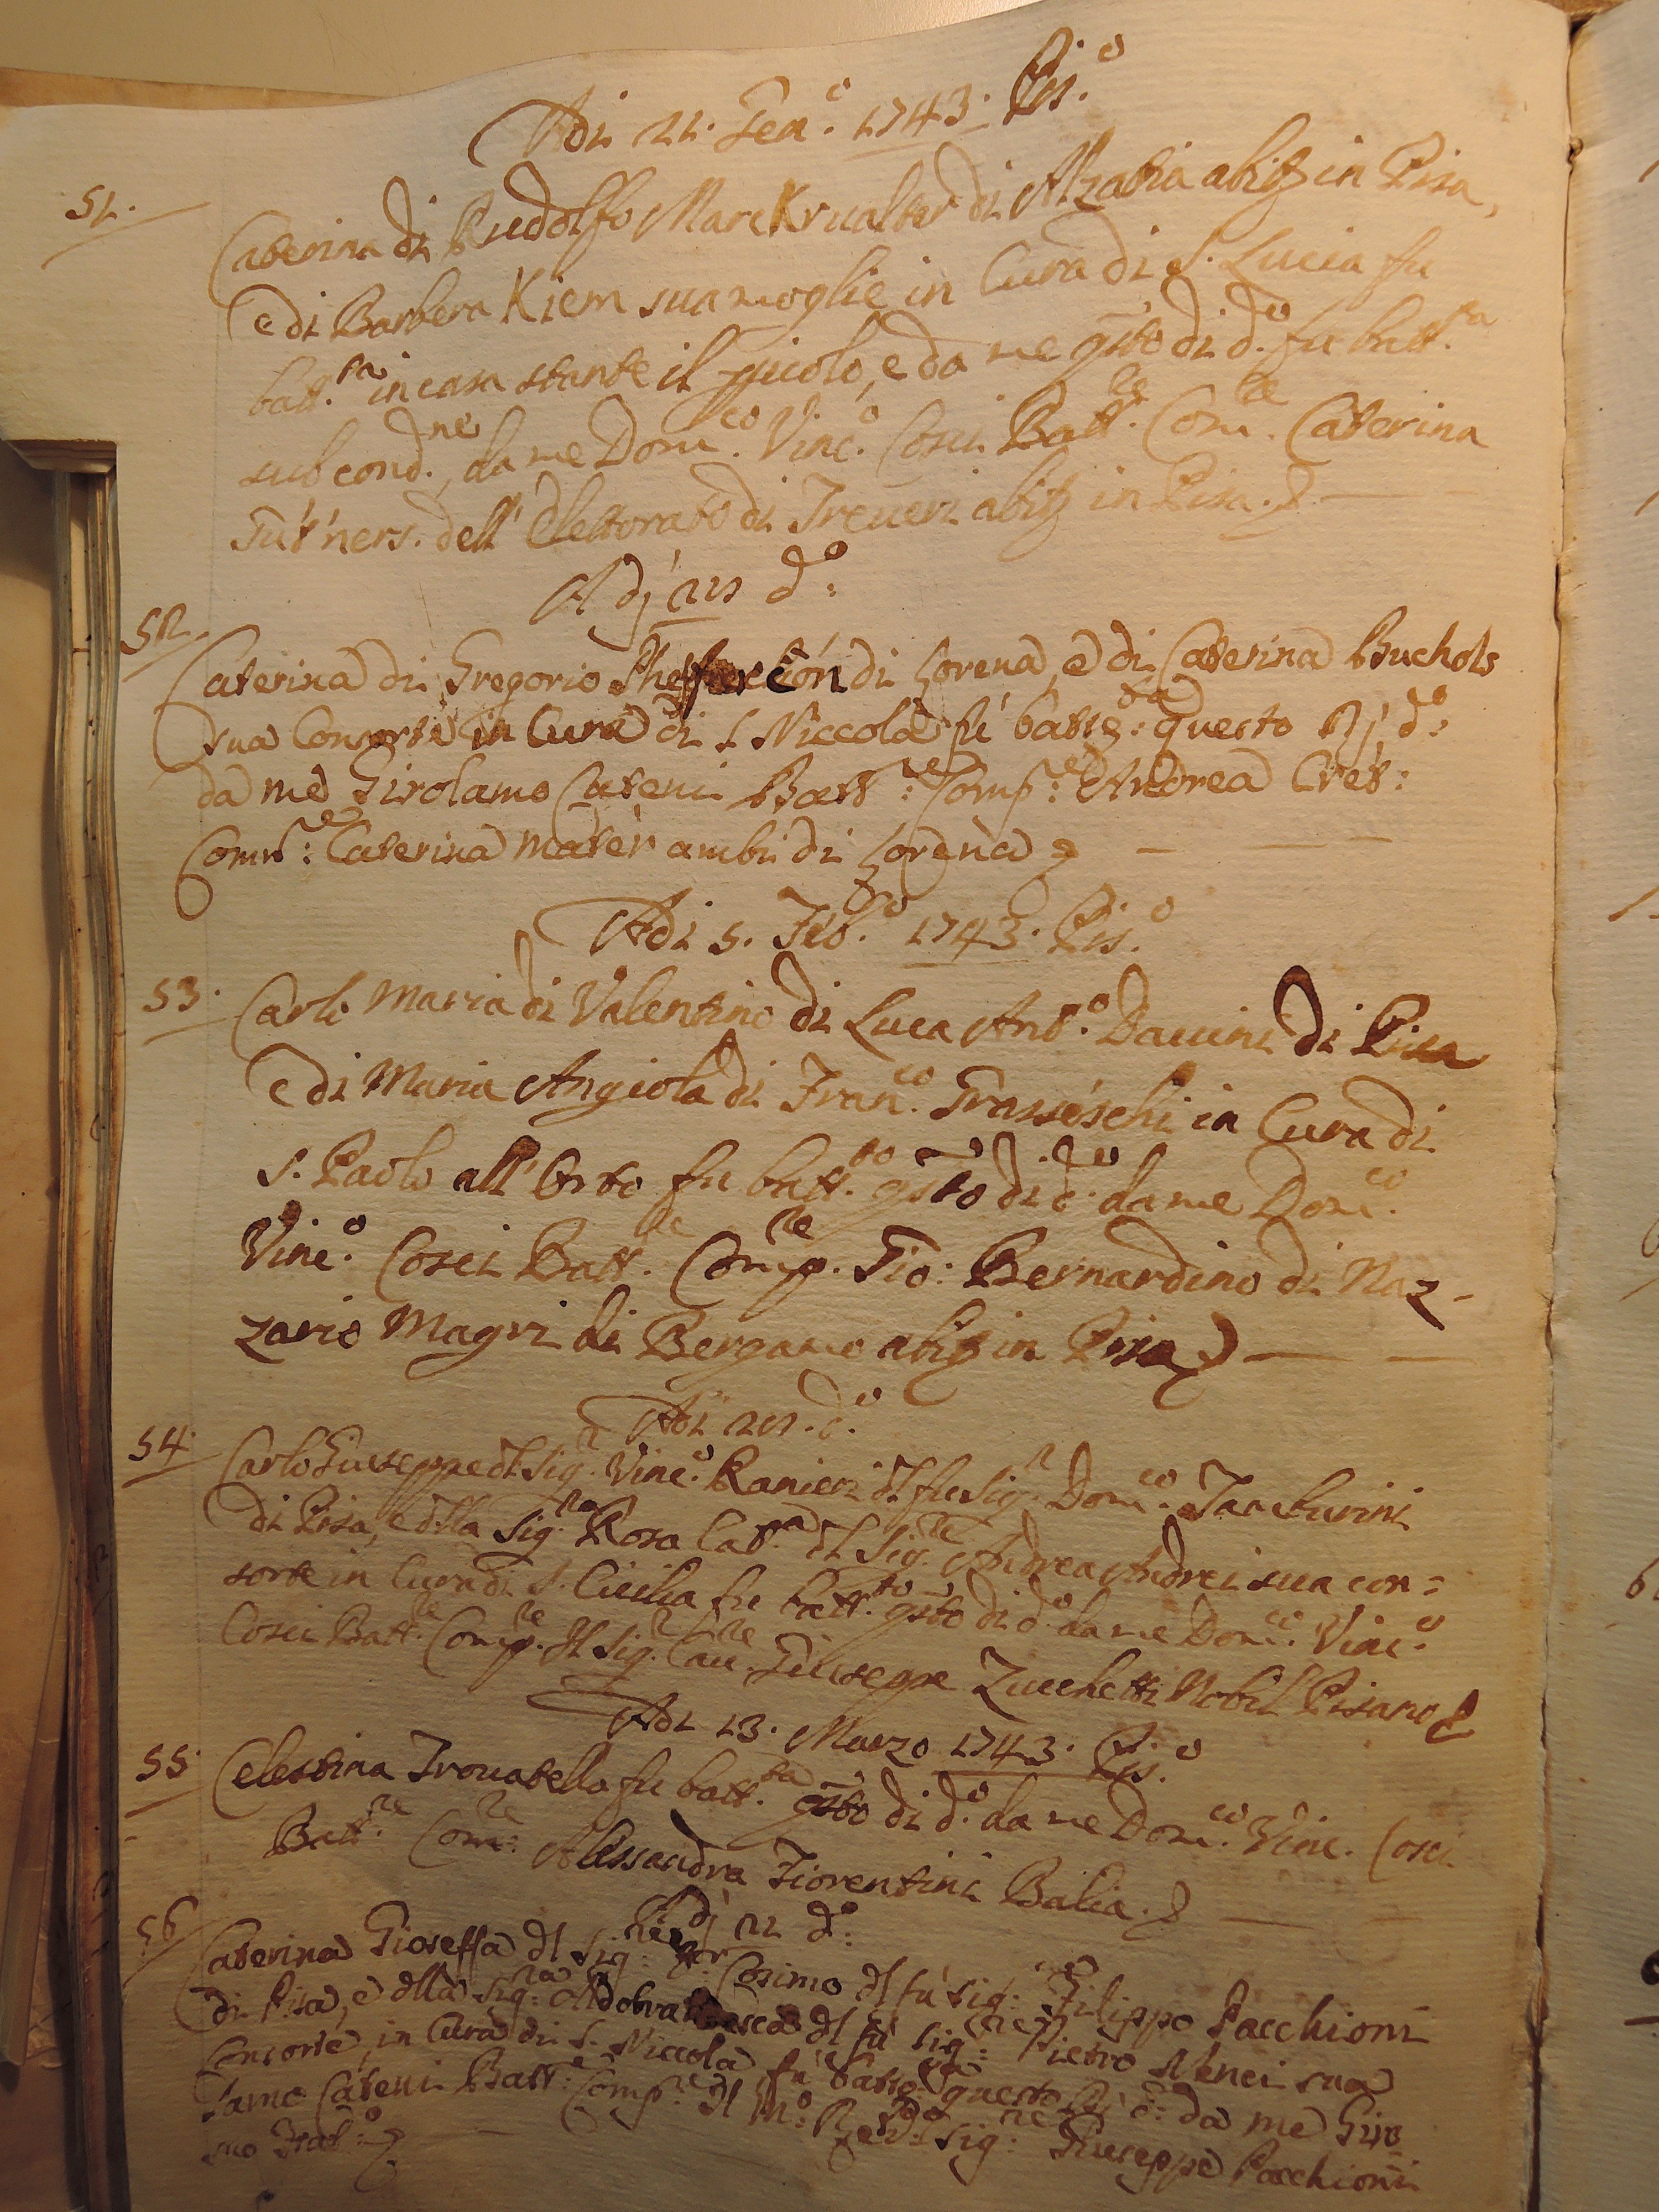 Adi 21. Gen.º 1743. Pis.º
51.
Caterina di Rudolfo Marckrualter di Alzatia abitz in Pisa,
e di Barbera Kiem sua moglie in Cura di S. Lucia fu
batt.ta in casa stante il picolo, e da me qsto di d.º fu batt.ta
sub cond.ne da me Dom.co Vinc.º Cosci Batt.re Com.re Caterina
Gut'ners. dell' Elettorato di Treveri abitz in Pisa.
Adj 29 d.º
52.
Caterina di Gregorio di Lorena, e di Caterina Buchols
sua Consorte in Cura di S. Niccola fù batte:ta questo Dj d.º:
da me Girolamo Cateni Batt:re Comp:re Andrea Cret:
Com:re Caterina mater ambi di Lorena
Adi 5. Feb.ro 1743. Pis.º
53.
Carlo Maria di Valentino di Luca Ant.º Daccini di Pisa
e di Maria Angiola di Fran.co Grasseschi in Cura di
S. Paolo all' Orto fu batt.to qsto di d.º da me Dom.co
Vinc.º Cosci Batt.re Comp.re Gio: Bernardino di Naz-
zario Magri di Bergamo abitz in Pisa
Adi 29. d.º
54.
Carlo Giuseppe dl Sig.r Vinc.º Ranieri dl fu Sig.r Dom.co Tamburini
di Pisa, e dlla Sig.ra Rosa Cat.a dl Sig.re Andrea Andrei sua con=
sorte in Cura di S. Cicilia fu batt.to qsto di d.º da me Dom.co Vinc.º
Cosci Batt.re Comp.re Il Sig.r Cav.re Giuseppe Zucchetti Nobil Pisano
Adi 13. Marzo 1743. Pis.º
55.
Celestina Trovatella fu batt.ta qsto di d.º da me Dom.co Vinc. Cosci
Batt.re Com.re Alessandra Fiorentini Balia.
Adj 21 d.º:
56
Caterina Gioseffa dl Sig:re Cosimo dl fù Sig:re Filippo Pacchioni
di Pisa, e dlla Sig:ra dl fù Sig:re Pietro Nenci sua
Consorte, in Cura di S. Niccola fù batte:ta questo Dj d.º: da me Giro
lamo Cateni Batt:re Comp:re Il M.º Revdo Sig:re Giuseppe Pacchioni
suo Frat:º